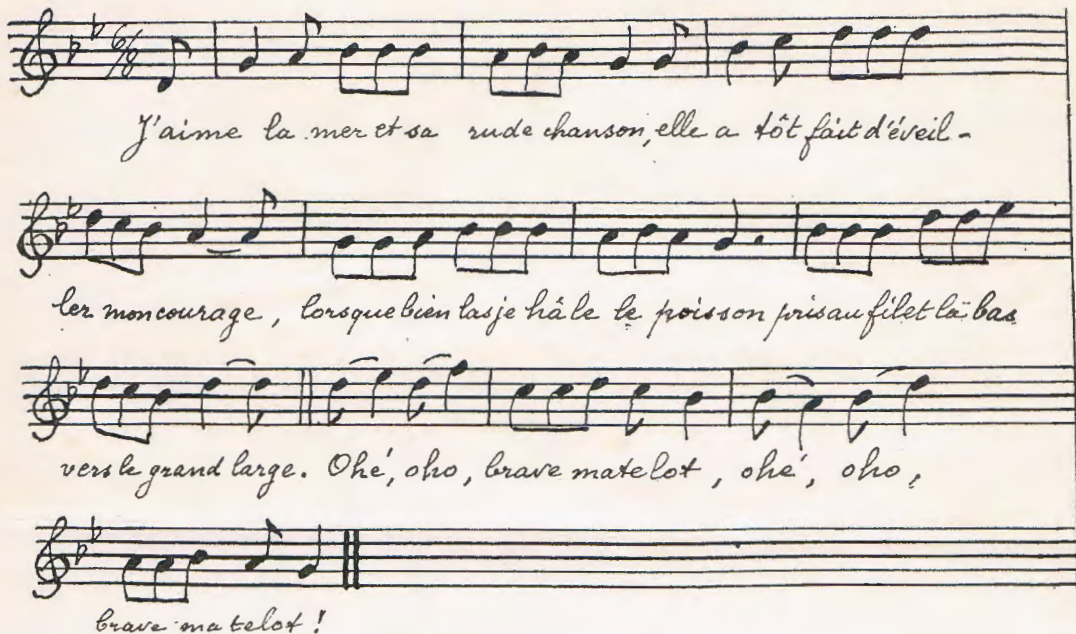 6/8
J'aime la mer et sa rude chanson, elle a tôt fait d'éveil-
ler mon courage, lorsque bien las je hâle le poisson pris au filet là bas
vers le grand large. Ohé, oho, brave matelot, ohé, oho,
brave matelot !